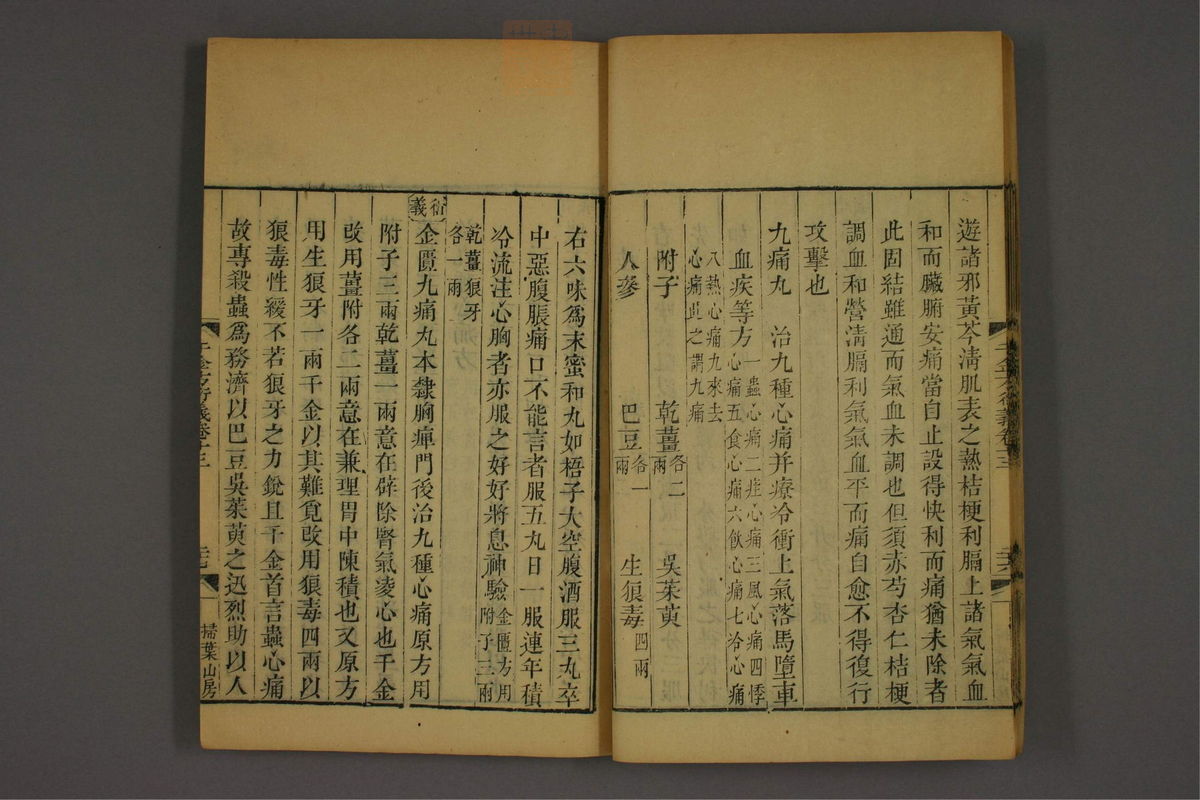 遊諸邪黃芩淸肌表之熱桔梗利膈上諸氣氣血
和而臟腑安痛當自止設得快利而痛猶未除者
此固結雖通而氣血未調也但須赤芍杏仁桔梗
調血和營淸膈利氣氣血平而痛自愈不得復行
攻擊也
九痛丸　治九種心痛并療冷衝上氣落馬墮車
血疾等方
一蟲心痛二疰心痛三風心痛四悸
心痛五食心痛六飲心痛七冷心痛
八熱心痛九來去
心痛此之謂九痛
附子　乾薑各二兩　吳茱萸
人參　巴豆各一兩　生狼毒四兩
右六味爲末蜜和丸如梧子大空腹酒服三丸卒
中惡腹脹痛口不能言者服五丸日一服連年積
冷流注心胸者亦服之好好將息神驗
金匱方用
附子三兩
乾薑狼牙
各一兩
衍義
金匱九痛丸本隸胸痺門後治九種心痛原方用
附子三兩乾薑一兩意在辟除腎氣凌心也千金
改用薑附各二兩意在兼理胃中陳積也又原方
用生狼牙一兩千金以其難覓改用狼毒四兩以
狼毒性緩不若狼牙之力銳且千金首言蟲心痛
故專殺蟲爲務濟以巴豆吳茱萸之迅烈助以人
千金方衍義卷十三
掃葉山房